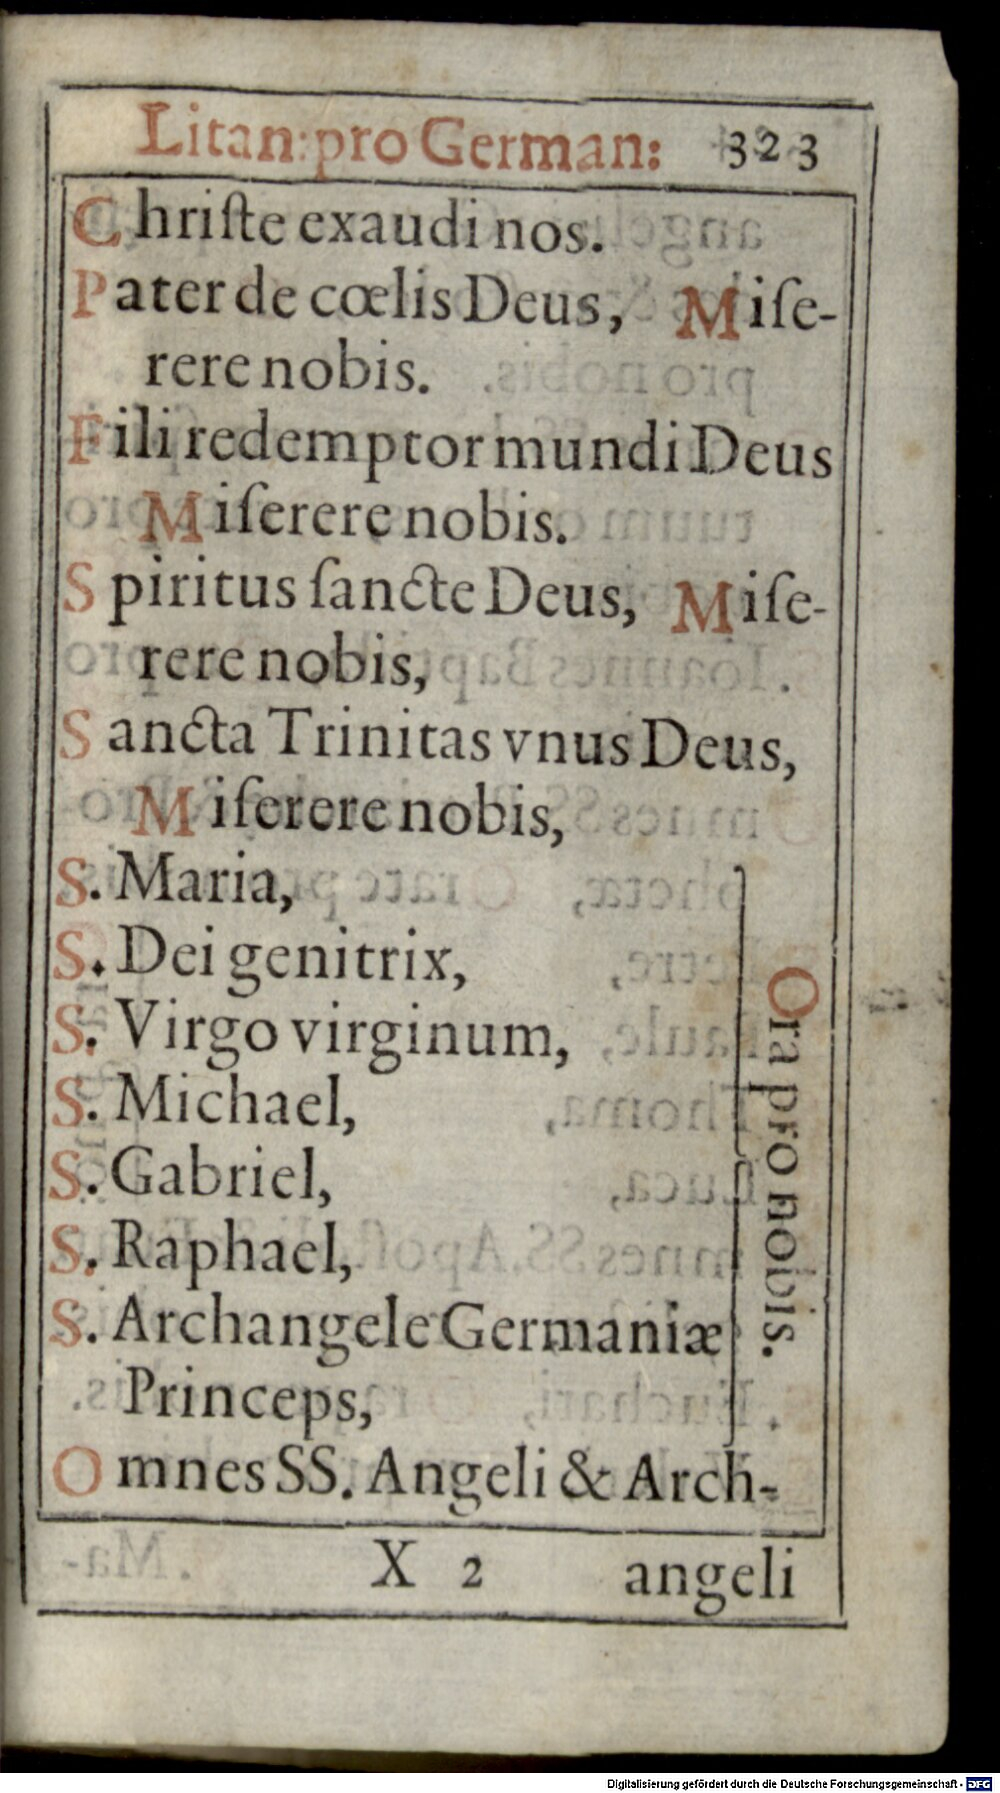 Litan: pro German: 323
Chriſte exaudi nos.
Pater de cœlis Deus, Miſe-
rere nobis.
Fili redemptor mundi Deus
Miſerere nobis.
Spiritus ſancte Deus, Miſe-
rere nobis,
Sancta Trinitas vnus Deus,
Miſerere nobis,
S. Maria,
S. Dei genitrix,
S. Virgo virginum,
S. Michael,
S. Gabriel,
S. Raphael,
S. Archangele Germaniæ
Princeps,
Ora pro nobis.
Omnes SS. Angeli & Arch-
X 2 angeli
Digitalisierung gefördert durch die Deutsche Forschungsgemeinschaft - DFG